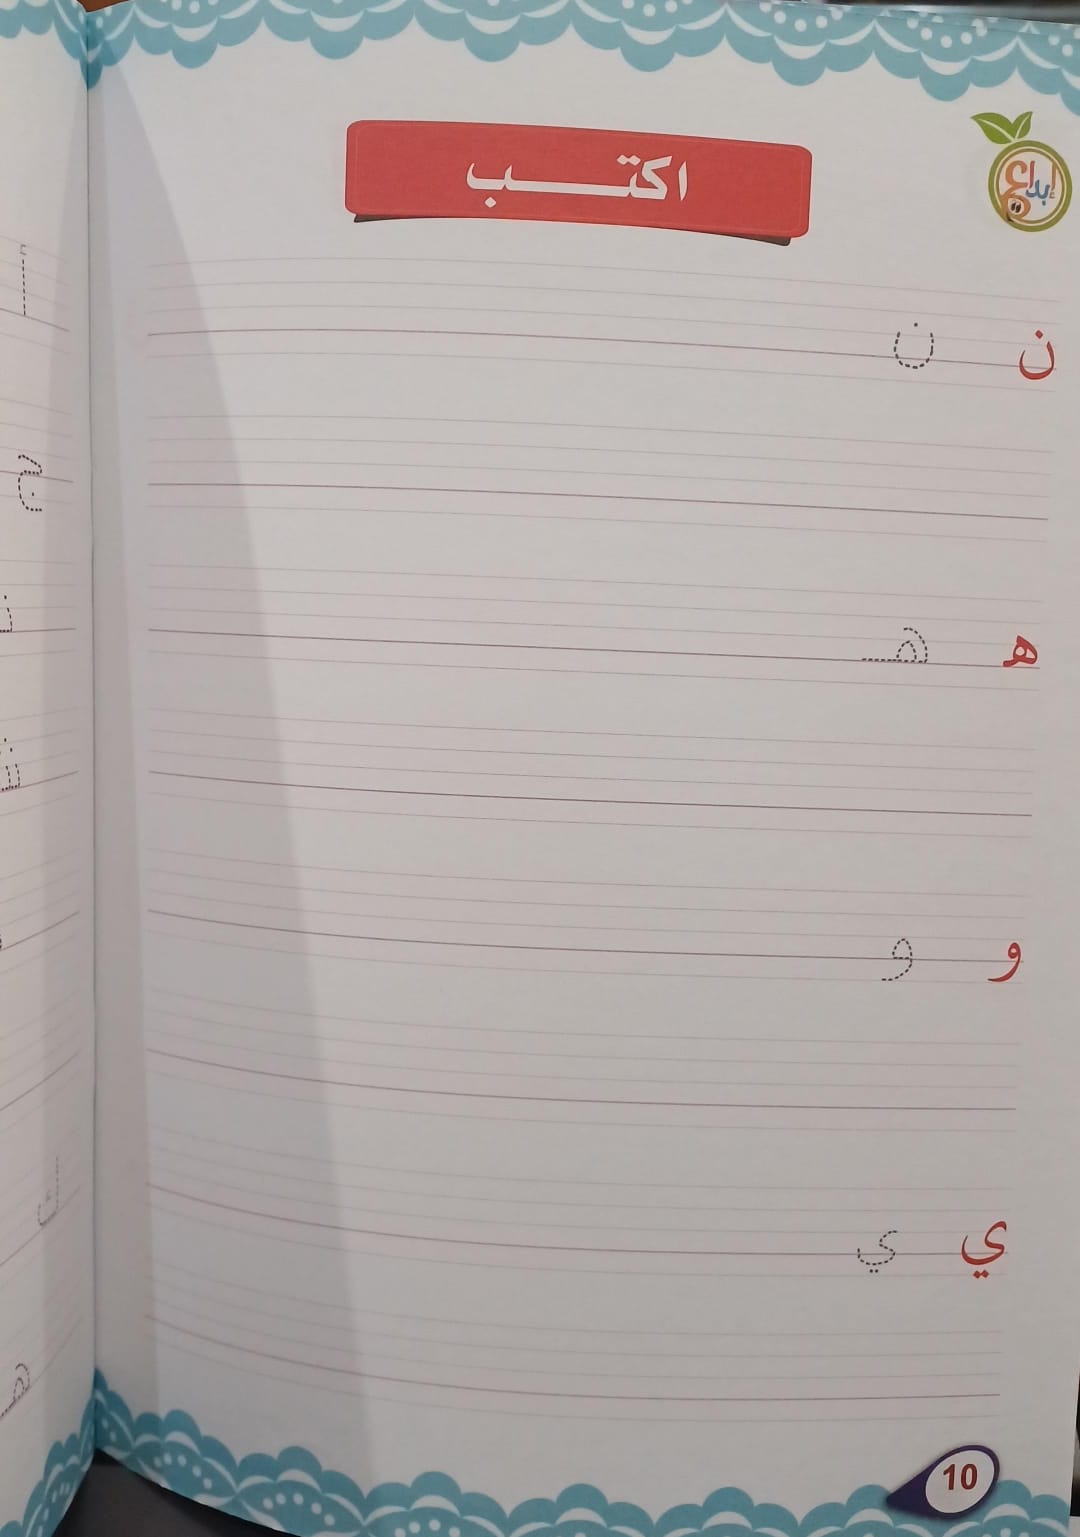 اكتب
إبداع
ن ن
هـ هـ
و و
ي ي
10